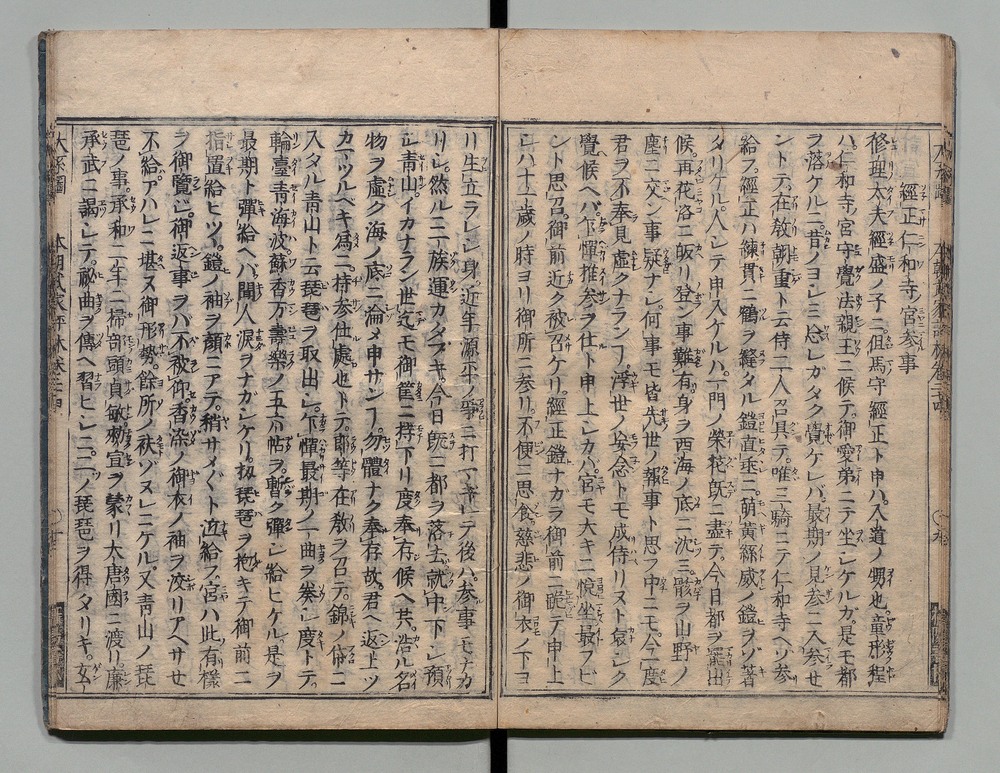 經正仁和寺ノ宮参事
修理太夫經盛ノ子ニ但馬守經正ト申ハ入道ノ甥也童形程
ハ仁和寺ノ宮守覺法親王ニ候テ御愛弟ニテ坐シケルカ是モ都
ヲ落ケルニ昔ノヨシミ忘レガタク覺ケレバ最期ノ見参ニ入参セ
ントテ在敎朝重ト云侍二人召具テ唯三騎ニテ仁和寺ヘゾ参
給フ經正ハ練貫ニ鶴ヲ縫タル鎧直垂ニ萌黄絲威ノ鎧ヲゾ著
タリケル人シテ申入ケルハ一門ノ榮花既ニ盡テ今日都ヲ罷出
候再花洛ニ皈リ登ン事難有身ヲ西海ノ底ニ沈三骸ヲ山野ノ
塵ニ交ン事疑ナシ何事モ皆先世ノ報事ト思フ中ニモ今一度
君ヲ不奉見虛クナラン丁浮世ノ妄念トモ成侍リヌト哀シク
覺候ヘバ乍憚推参ヲ仕ト申上シカバ宮モ大キニ悅坐最フビ
ント思召御前近ク被召ケリ經正鎧ナカラ御前ニ跪テ申上
シハ十一歳ノ時ヨリ御所ニ参リ不便ニ思食慈悲ノ御衣ノ下ヨ
リ生立ラレシ身近年源平ノ爭ニ打マギレテ後ハ参事モナカ
リシ然ルニ一族運カタブキ今日既ニ都ヲ落去就中下シ預
シ青山イカナラン世迄モ御筐ニ持下リ度奉存候ヘ共浩ル名
物ヲ虛ク海ノ底ニ淪メ申サン丁勿體ナク奉存故君ヘ返上ツ
カマツルベキ爲ニ持参仕處也トテ郎等在敎ヲ召テ錦ノ俗ニ
入タル青山ト云琵琶ヲ取出シ乍憚最期ノ一曲ヲ奏シ度トテ
輪臺青海波蘇香万壽樂ノ五六帖ヲ暫ク彈シ給ヒケル是ヲ
最期ト彈給ヘハ聞人涙ヲナガシケリ扨琵琶ヲ抱キテ御前ニ
指置給ヒツヽ鎧ノ袖ヲ顏ニアテ稍サメ〴〵ト泣給フ宮ハ此有樣
ヲ御覽シ御返事ヲバ不被仰香染ノ御衣ノ袖ヲ洨リアヘサセ
不給アハレニ堪ヌ御形勢餘所ノ袂ゾヌレニケル又青山ノ琵
琶ノ事承和二年ニ掃部頭貞敏勅宣ヲ蒙リ太唐國ニ渡リ廉
承武ニ謁シテ祕曲ヲ傳ヘ習ヒシニ二ツノ琵琶ヲ得タリキ玄